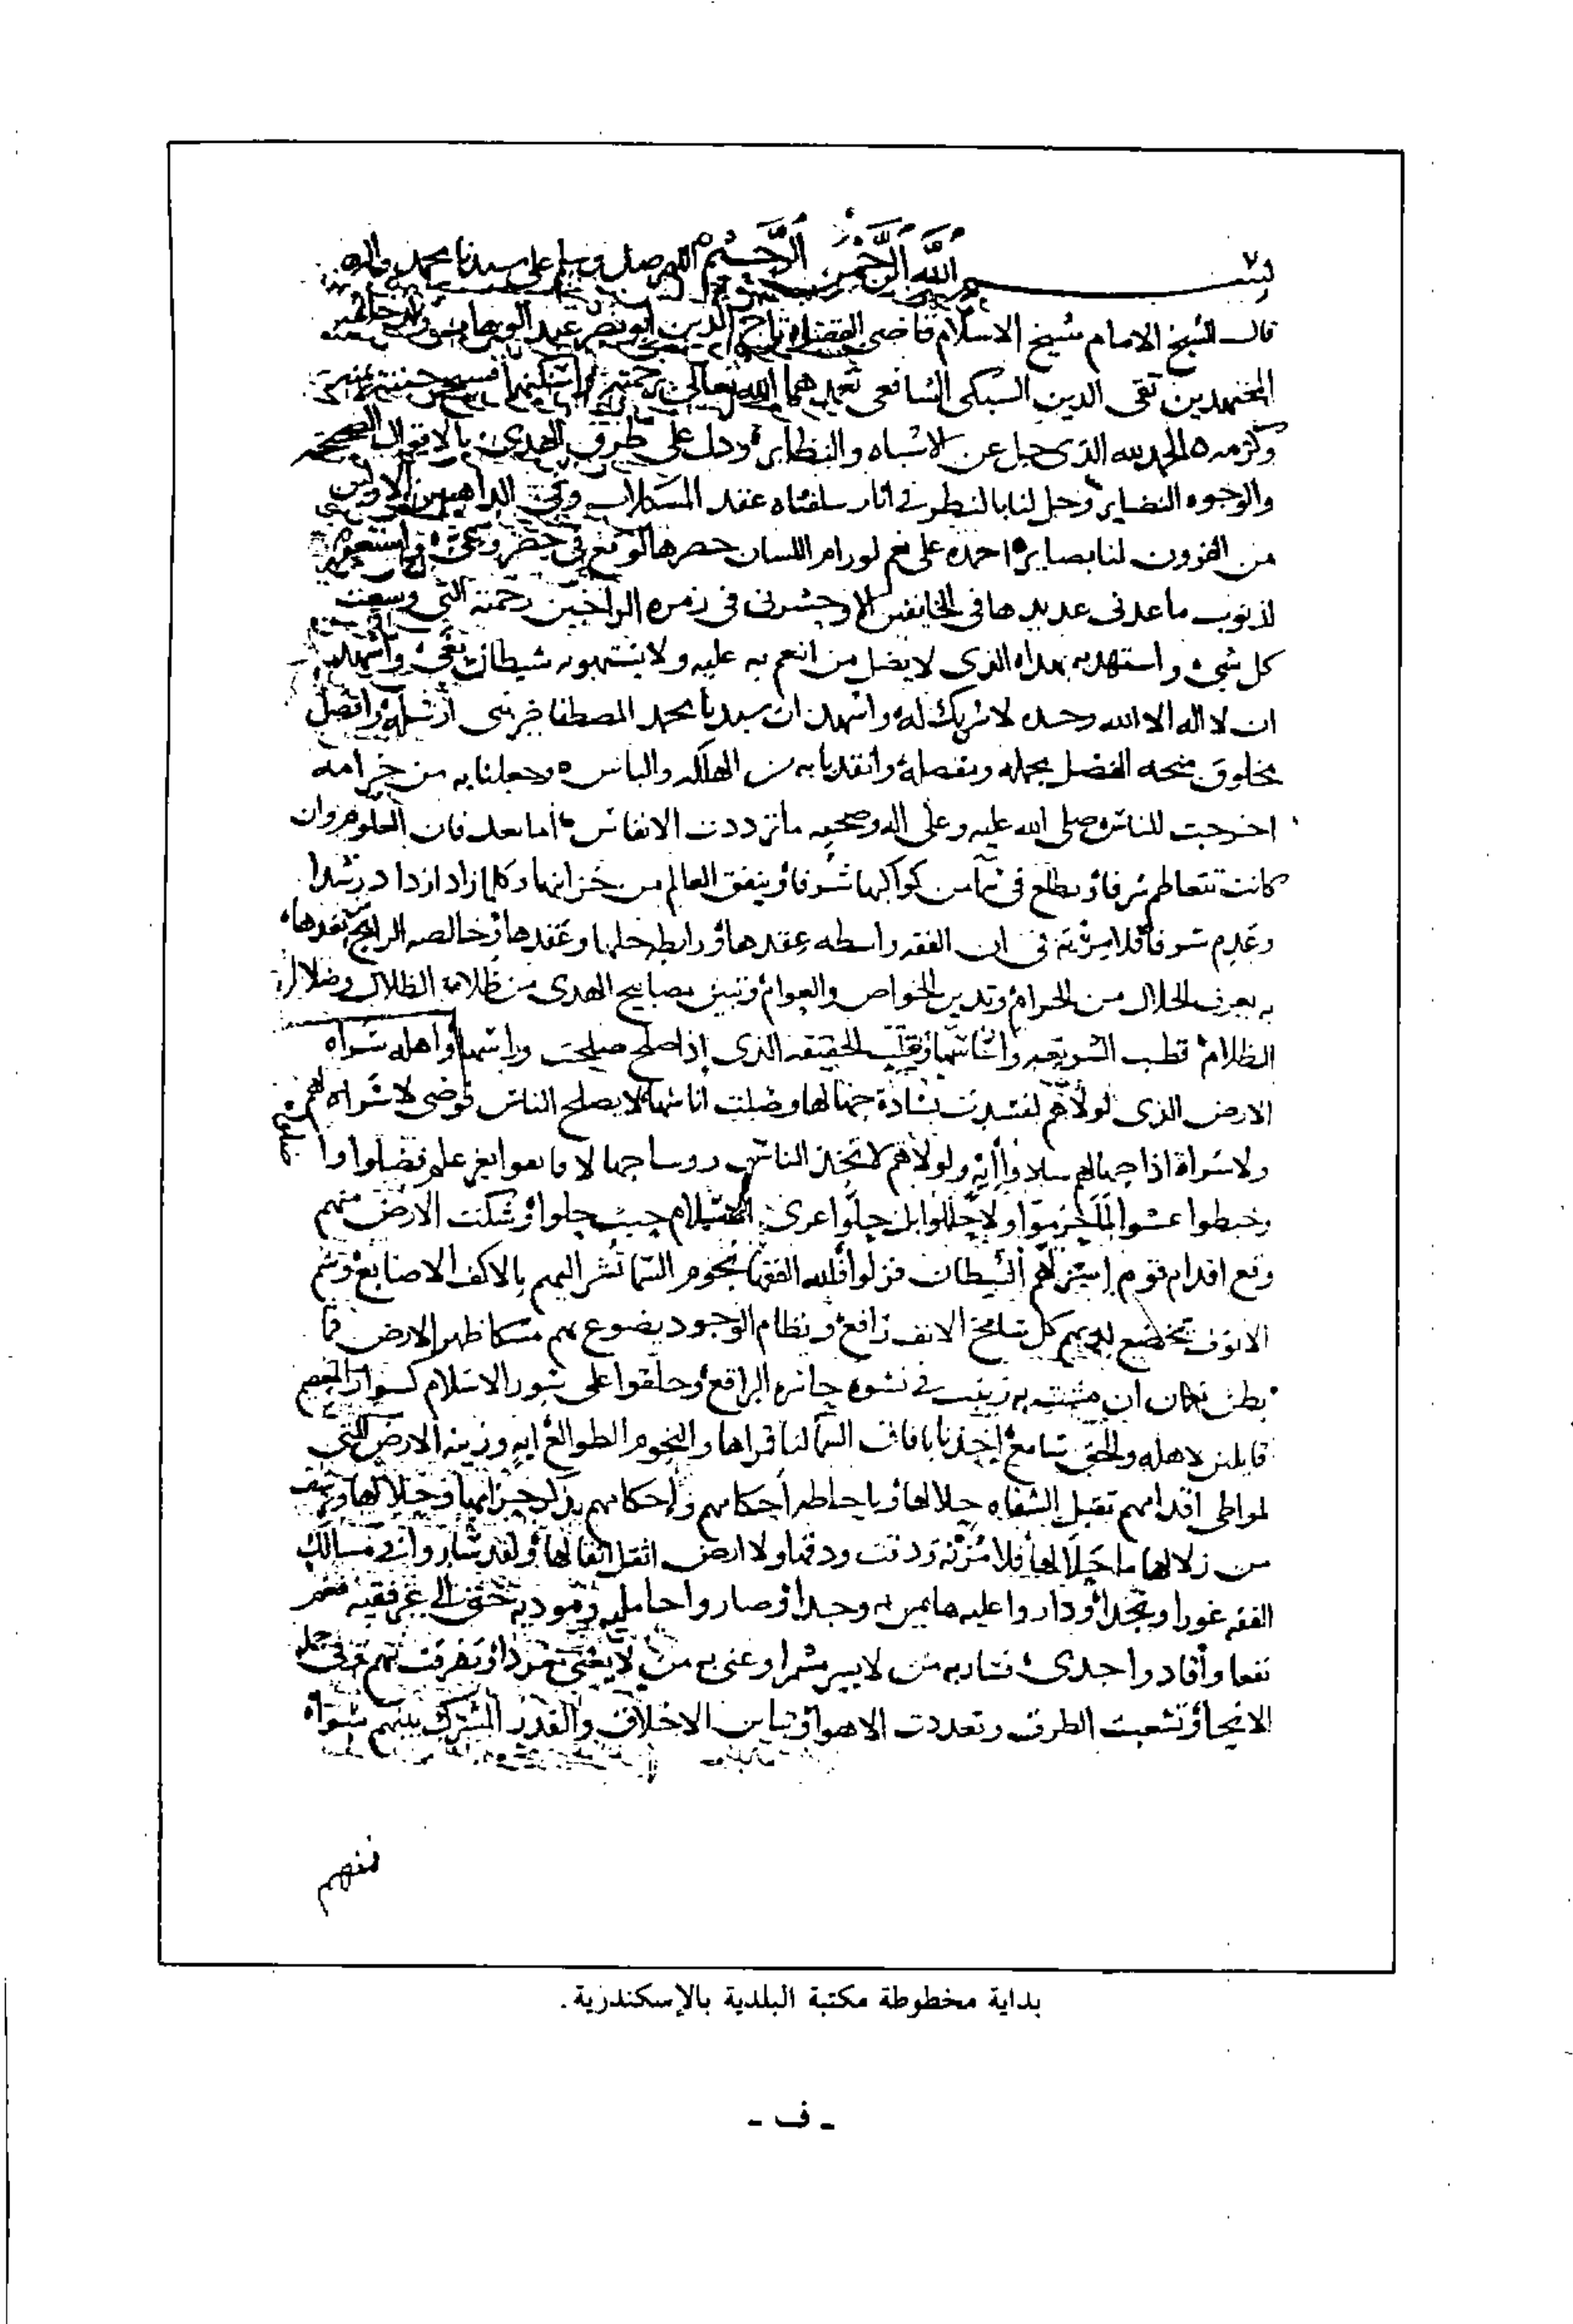 بسم الله الرحمن الرحيم اللهم صل وسلم على سيدنا محمد واله
قال الشيخ الامام شيخ الاسلام قاضى القضاه تاج الدين ابو نصر عبد الوهاب
المجتهدين تقى الدين السبكى الشافعى تغمدهما الله تعالى برحمته واسكنهما فسيح جنته
وكرمه الحمد لله الذى جل عن الاشباه والنظاير ودل على طرق الهدى بالاقوال الصحيحه
والوجوه النضاير وحل لنا بالنظر فى اثار سلفناه عقد المشكلات وفى الذاهبين الاولين
من القرون لنا بصاير احمده على نعم لو رام اللسان حصرها لوقع فى حصر وعى واستغفره
لذنوب ما عدنى عديدها فى الخايفين الا وحشرنى فى زمره الراجين رحمته التى وسعت
كل شىء واستهديه بهداه الذى لا يضل من انعم به عليه ولا يستهويه شيطان بغى واشهد
ان لا اله الا الله وحده لا شريك له واشهد ان سيدنا محمد المصطفا خير نبى ارسله وافضل
مخلوق منحه الفضل بجمله ومفصله وانقدنا به من الهلكه والباس وجعلنا به من خير امه
اخرجت للناس صلى الله عليه وعلى اله وصحبه ما ترددت الانفاس اما بعد فان العلوم وان
كانت تتعاظم شرفا وتطلع فى سما من كواكبها شرفا وينفق العالم من خزاينها وكلما زاد ازداد رشدا
وعدم سرفا فلا مريه فى ان الفقه واسطه عقدها ورابطه حلها وعقدها وخالصه الرايج نقدها
به يعرف الحلال من الحرام وتدين الخواص والعوام وتبين مصابيح الهدى من ظلام الظلال وضلال
الظلام قطب الشريعه واساسها وقلب الحقيقه الذى اذا صلح صلحت وراسها واهله سراه
الارض الذى لولاهم لفسدت بسادة جهالها وضلت اناسها لا يصلح الناس فوضى لا سراه لهم
ولا سراة اذا جهالهم سادوا ايه ولولاهم لاتخذ الناس روسا جهالا فافتوا بغير علم فضلوا واضلوا
وخبطوا عشوا لما حرموا وحللوا بل حلوا عرى الاسلام حيث حلوا وشكت الارض منهم
وقع اقدام قوم استزلهم الشيطان فزلوا فلله الفقها نجوم السما تشر اليهم بالاكف الاصابع وشم
الانوف تخضع لديهم كل شامخ الانف رافع ونظام الوجود يضوع بهم مسكا ظهر الارض فما
بطن نعمان ان مشت به زينب فى نسوه جائزه الرافع وحلقوا على سور الاسلام كسوار المعصم
قايلين لاهله والحق سامع اخذنا بافاق السما لنا قمراها والنجوم الطوالع ايه وزينه الارض التى
لمواطى اقدامهم تقبل الشفاه جلالها وباحاطه احكامهم واحكامهم يذكر حرامها وحلالها وترشف
من زلالها ما حلا لها فلا مزنه ودقت ودقها ولا ارض ابقل ابقالها ولقد ساروا فى مسالك
الفقه غورا ونجدا وداروا عليه هايمين به وجدا وصاروا حامليه ومؤديه حتى الى غير فقيه فعم
نفعا وافاد واجدى وسار به من لا يسير مشمرا وغنى به من لا يغنى مغردا وتفرقت بهم فرق
الانحا وتشعبت الطرق وتعددت الاهوا وتباين الاخلاق والقدر المشترك بينهم سواه
فمنهم
بداية مخطوطة مكتبة البلدية بالإسكندرية.
- ف -